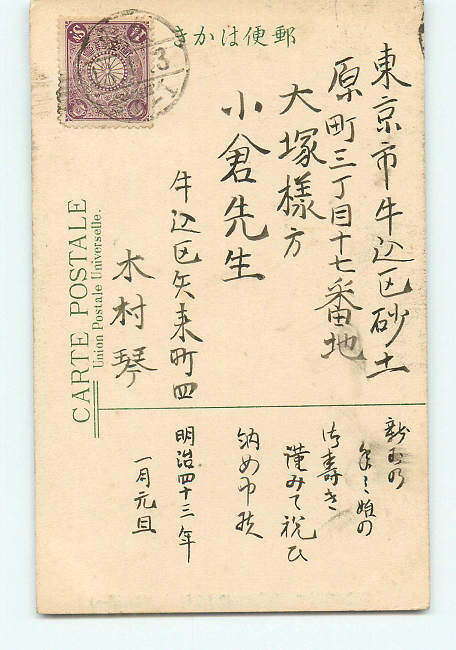 郵便はかき
東京市牛込区砂土
原町三丁目十七番地
大塚様方
小倉先生
牛込区矢来町四
木村琴
CARTE POSTALE
Union Postale Universelle.
新玉の
年の始の
御寿き
謹みて祝ひ
納め申候
明治四十三年
一月元旦